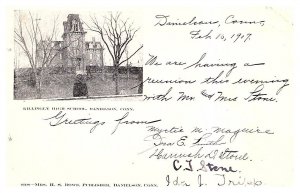 Danielson, Conn,
Feb 16, 1907.
We are having a
reunion this evening
with Mr & Mrs Stone.
KILLINGLY HIGH SCHOOL, DANIELSON, CONN.
Greetings from
Myrtie M. Maguire
Hannah D. Stone.
C. T. Stone.
Ida J. Tripp.
MRS. H. S. BOWS, PUBLISHER, DANIELSON, CONN.